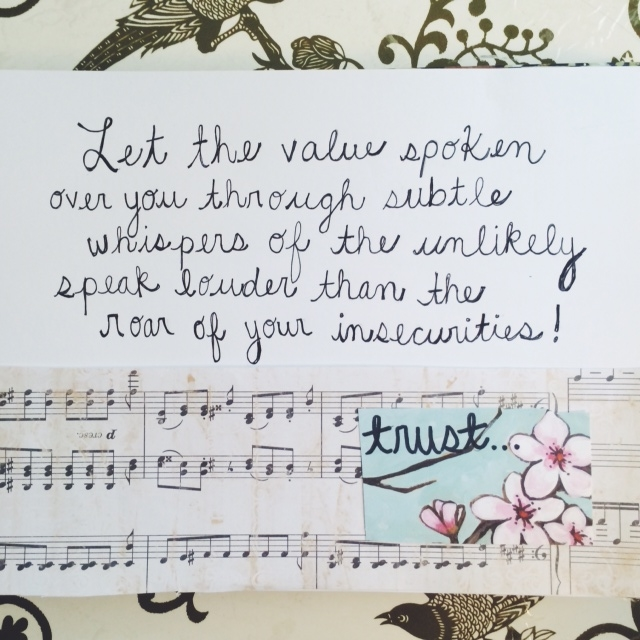 Let the value spoken
over you through subtle
whispers of the unlikely
speak louder than the
roar of your insecurities!
trust..